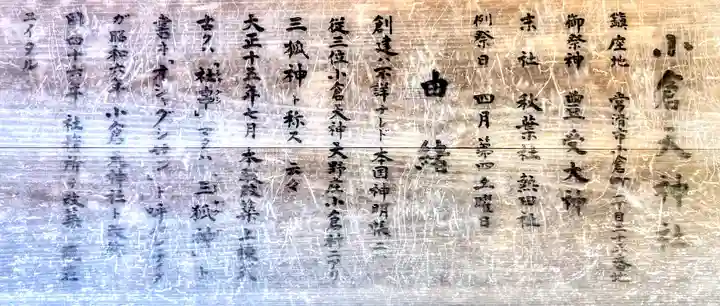 小倉天神社
鎮座地 常滑市小倉町二丁目二十六番地
御祭神 豊受大神
末社 秋葉社 熱田社
例祭日 四月第四土曜日
由緒
創建ハ不詳ナレド本国神明帳ニ
従三位小倉天神天野庄小倉村ニアリ
三狐神ト称ス 云々
大正十五年七月 本殿改築上棟式
古クハ 社 マタハ 三狐神 ト
書キ オシャグジサン ト呼
ガ昭和六年 小倉天神社ト改
昭四十六年 社務所ヲ改築
エイタル